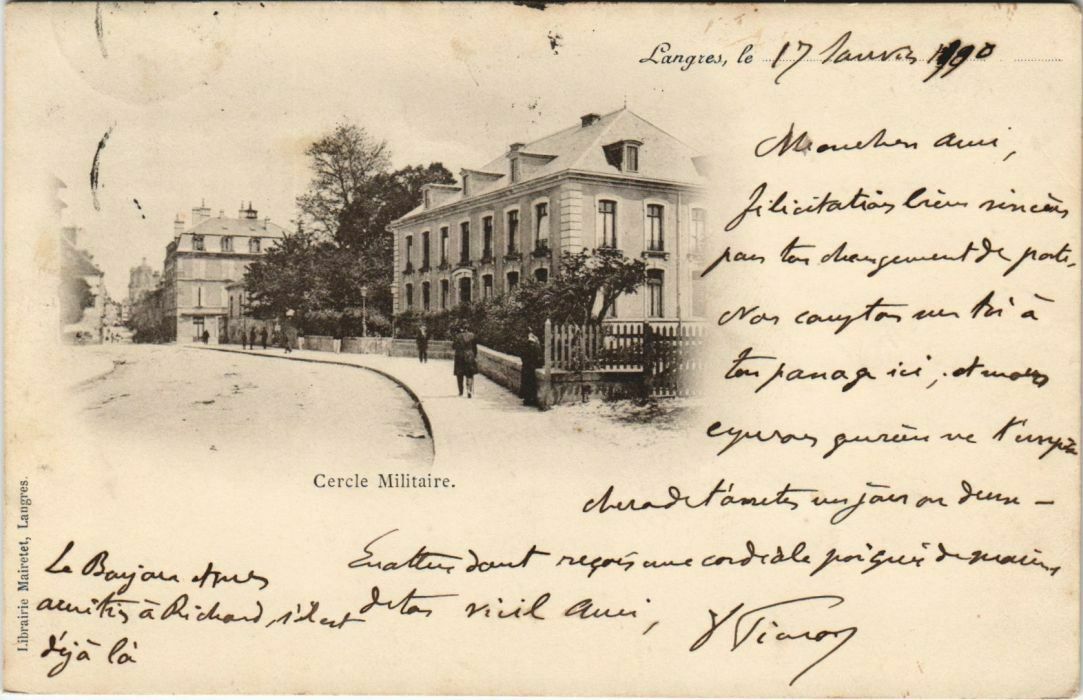 Langres, le 17 Janvier 190
Mon cher ami,
félicitations bien sincères
pour ton changement de poste.
Nous comptons sur toi à
ton passage ici, et nous
espérons que rien ne t'empê-
chera de t'arrêter un jour ou deux —
En attendant reçois une cordiale poignée de mains
de ton vieil ami,
Le Bonjour et mes
amitiés à Richard, s'il est
déjà là
Cercle Militaire.
Librairie Mairetet, Langres.